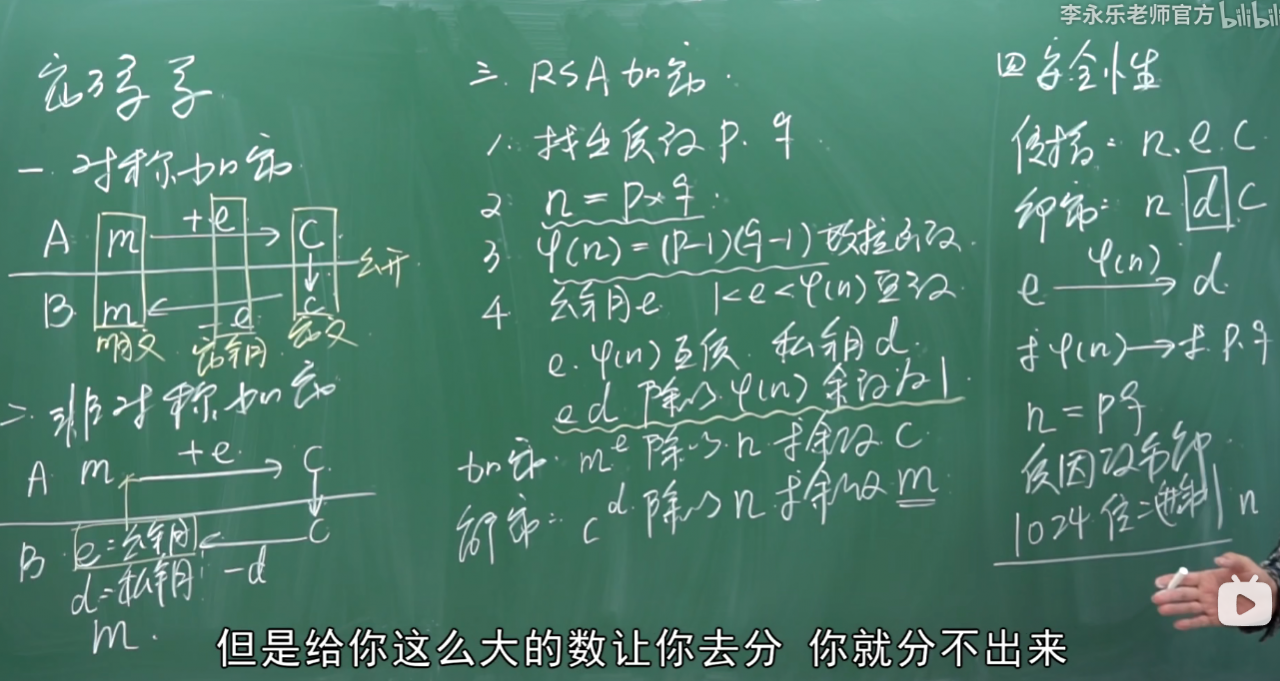 李永乐老师官方 bilibili
密码学
一. 对称加密.
A m +e C
公开
B m -e C
明文 密钥 密文
二. 非对称加密
A m +e. C
B. e=公钥 C
d=私钥 -d
m.
三. RSA加密.
1. 找出质数 p. q
2 n = p×q.
3. φ(n) = (p-1)(q-1) 欧拉函数.
4. 公钥e 1<e<φ(n) 整数
e. φ(n) 互质. 私钥d.
ed 除以 φ(n) 余数为1
加密. mᵉ 除以 n 求余数 C
解密: cᵈ 除以 n 求余数 m
四 安全性
传播: n. e. C
解密: n d C
e φ(n) d
求φ(n)→求. p. q
n = pq
质因数分解
1024位二进制 n
但是给你这么大的数让你去分 你就分不出来